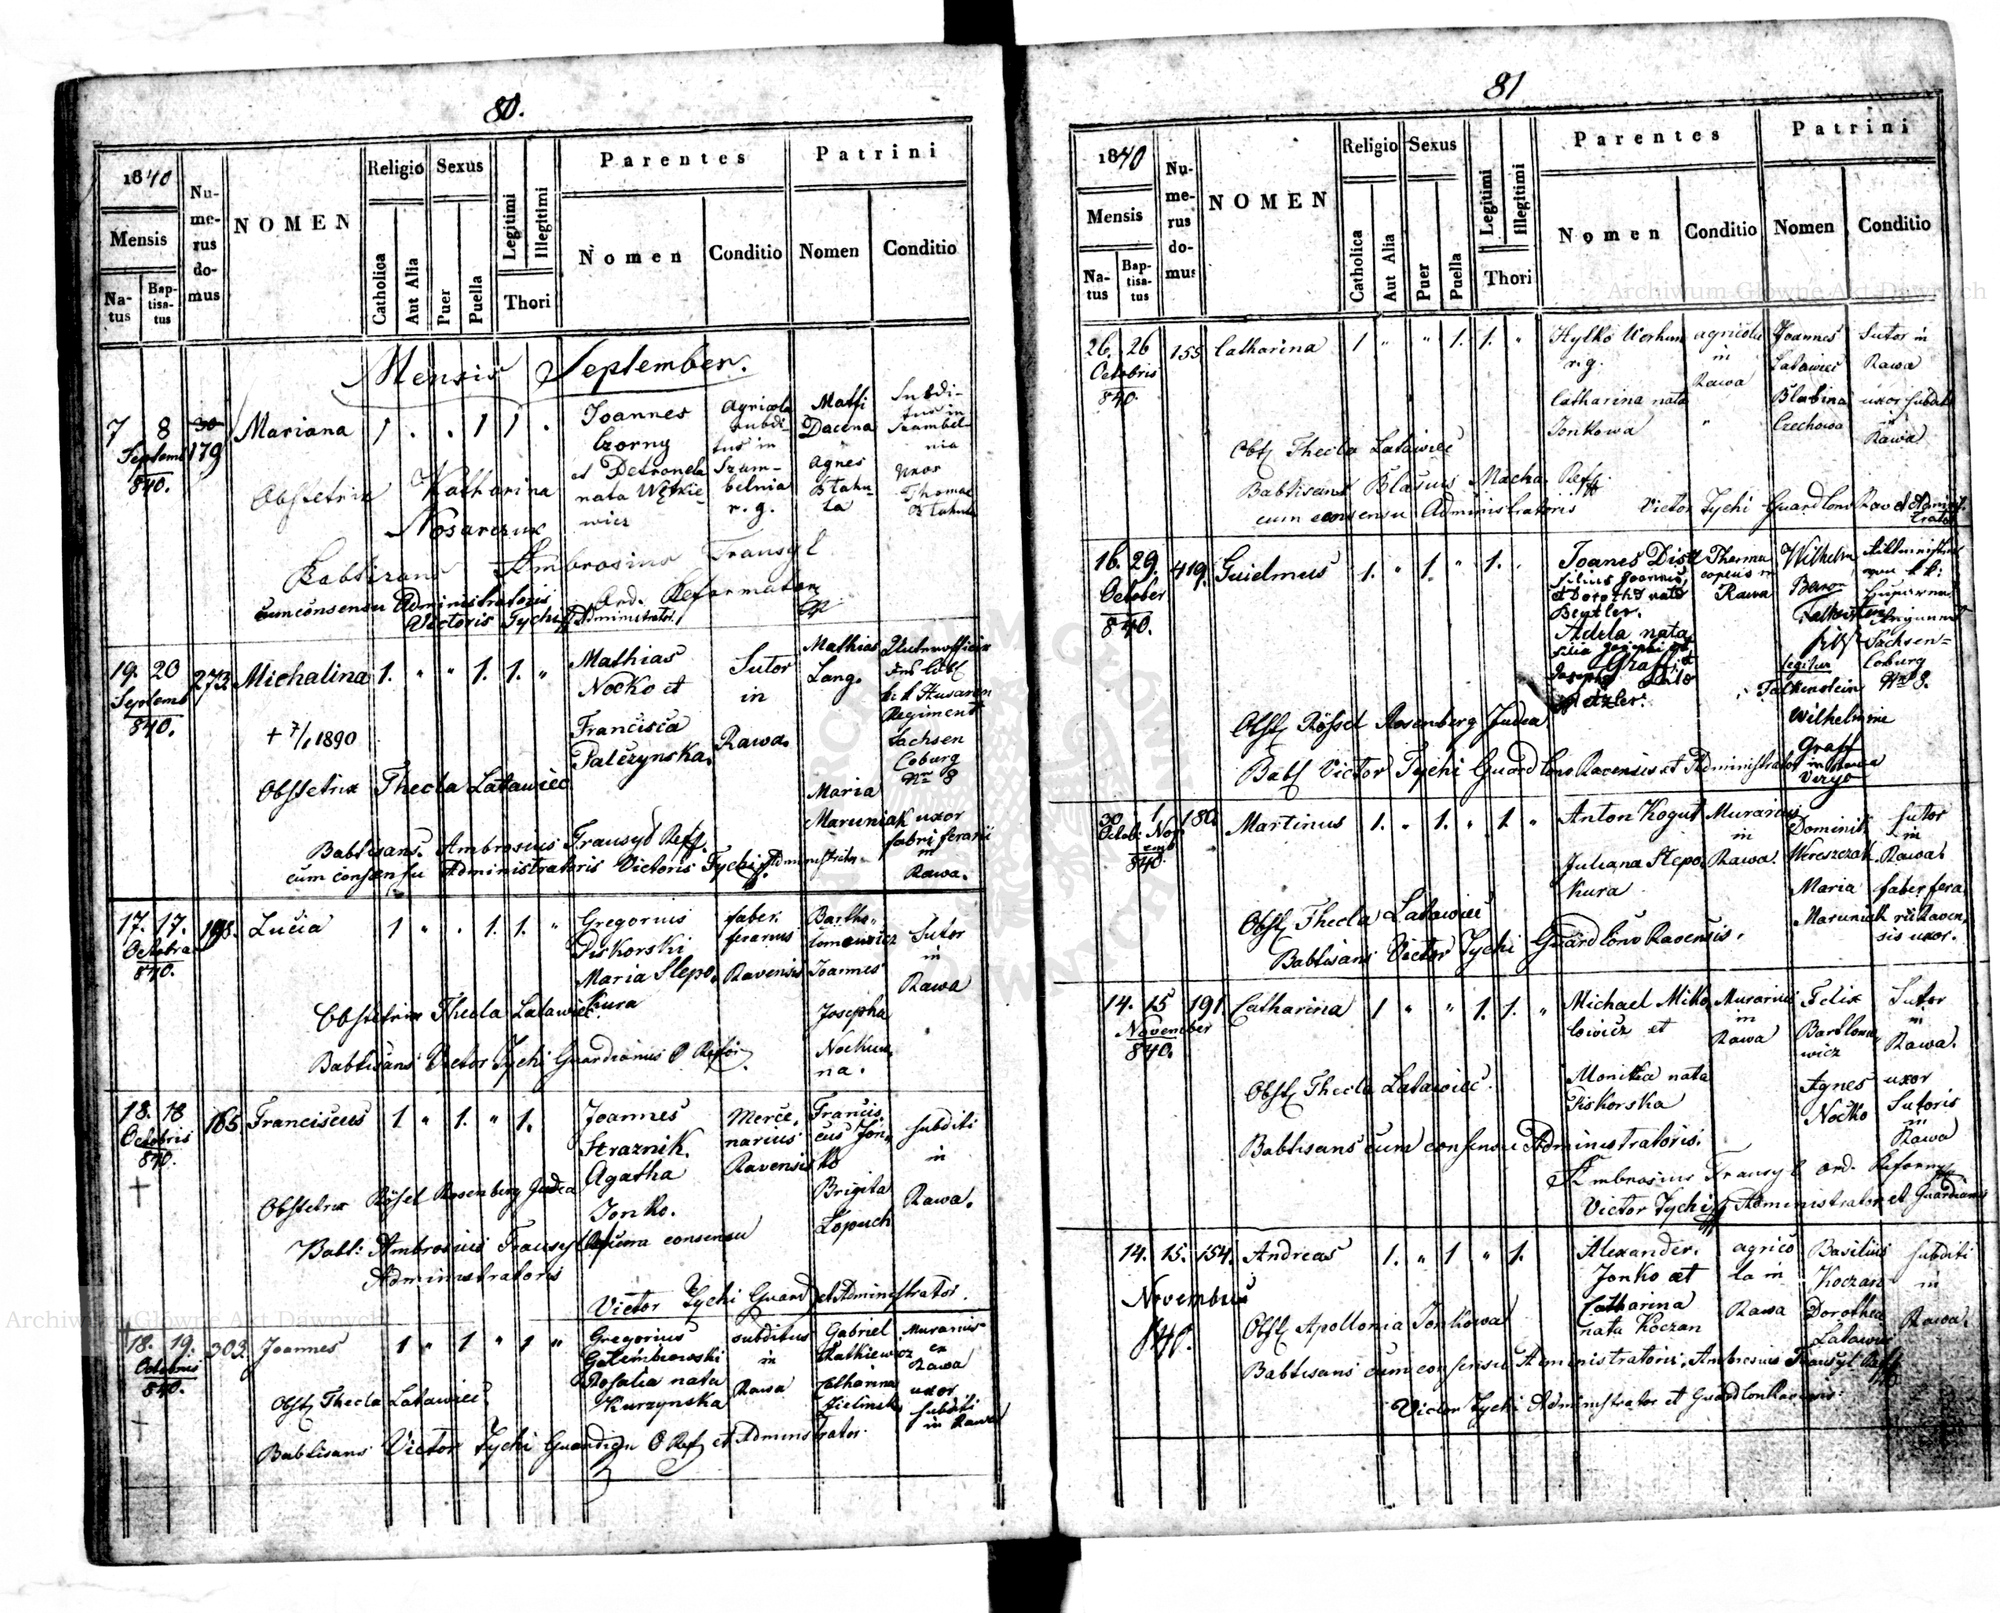 80.
1840
Mensis
Natus
Baptisatus
Numerus domus
NOMEN
Religio
Catholica
Aut Alia
Sexus
Puer
Puella
Legitimi
Illegitimi
Thori
Parentes
Nomen
Conditio
Patrini
Nomen
Conditio
Mensis September.
7 8 30 Mariana 1 . . 1 1 . Joannes Agricola
Septemb 179 Czorny subdi-
840. et Petronela tus in
nata
wicz r. g.
Agnes Uxor
Thomae
Obstetrix Katharina
Babtizans Ambrosius Transyl
cum consensu Administratoris Ord. Reformator
Victoris Tychi Administrator
19. 20 273. Michalina 1. " " 1. 1. " Mathias Sutor Mathias Unterofficier
Septemb Nocko et in Lang.
840. k. k. Husaren
+ 7/1 1890 Francisca Regiment
Palczynska. Rawa. Sachsen
Coburg
Nr 8
Obstetrix Thecla Latawiec Maria
Maruniak uxor
fabri ferarii
in
Rawa.
Babtisans. Ambrosius Transyl Reff.
cum consensu Administratoris Victoris Tychi Administrator
17. 17. 198. Lucia 1 " . 1. 1. " Gregorius faber. Bartho-
Octobra Piskorski ferarius lomowicz Sutor
840. Maria Slepo- Ravensis Joannes in
kura Rawa
Obstetrix Thecla Latawiec Josepha "
Babtisans Victor Tychi Guardianus O Refor. Nockow
na.
18. 18 165 Franciscus 1 " 1. " 1. Joannes Merce- Francis- subditi
Octobris Straznik. narius cus Jon- in
840. Agatha Ravensis ko
+ Jonko. Brigita Rawa.
Lopuch
Obstetrix Rösel Rosenberg Judea
Babt: Ambrosius Transyl cum consensu
Administratoris
Victor Tychi Guard et Administrator.
18. 19. 303. Joannes 1 " 1 " 1 " Gregorius subditus Gabriel Murarius
Octobris Golembiowski in Ratkiewicz ex
840. Rosalia nata Rawa Catharina Rawa
Kurzynska Zielinsk uxor
subditi
in Rawa
Obst Thecla Latawiec.
Babtisans Victor Tychi Guardian O Ref et Administrator
81
1840
Mensis
Natus
Baptisatus
Numerus domus
NOMEN
Religio
Catholica
Aut Alia
Sexus
Puer
Puella
Legitimi
Illegitimi
Thori
Parentes
Nomen
Conditio
Patrini
Nomen
Conditio
26. 26 155 Catharina 1 " " 1. 1. " Hylko Worhun agricola Joannes Sutor in
Octobris r. g. in Latawiec Rawa
840. Rawa
Catharina nata Blabina uxor subditi
Jonkowa " Czechowa Rawa
Obst Thecla Latawiec
Babtisans Blasius Macha Reff.
cum consensu Administratoris Victor Tychi Guard Conv Rav et Administrator
16. 29. 419. Guielmus 1. " 1. " 1. . Joanes Distl Wilhelm
October filius Joannis, Baron
840. et Dorothea nata Rawa
Beytler.
Adela nata Sachsen-
filia Josephi Graff et legitur Coburg
Josepha Falkenstein Nr 8.
Wilhelmine
Graff
Virgo
Obst Rössel Rosenberg Judea
Babt Victor Tychi Guard Conv Ravensis et Administrator
30 1 180. Martinus 1. " 1. " 1. " Anton Kogut Murarius Dominik sutor
Octob: Nov in Wereszczak in
emb Juliana Slepo- Rawa. Rawa.
840. kura Maria faber fera-
Maruniak rii Raven-
sis uxor.
Obst Thecla Latawiec
Babtisans Victor Tychi Guard Conv Ravensis.
14. 15 191. Catharina 1 " " 1. 1. " Michael Miko- Murarius Felix Sutor
November lowicz et in Bartlomo- in
840. Rawa wicz Rawa.
Monika nata Agnes uxor
Piskorska Nocko Sutoris
in
Rawa
Obst Thecla Latawiec.
Babtisans cum consensu Administratoris.
Ambrosius Transyl ord. Reform
Victor Tychi Administrator et Guardianus
14. 15. 154. Andreas 1. " 1 " 1. Alexander. agrico- Basilius subditi
Novembris Jonko et la in Koczan in
840. Catharina Rawa Dorothea Rawa.
nata Koczan Latawiec
Obst Apollonia Jonkowa
Babtisans cum consensu Administratoris. Ambrosius Transyl Reff
Victor Tychi Administrator et Guard Con Ravensis
Archiwum Główne Akt Dawnych
Archiwum Główne Akt Dawnych